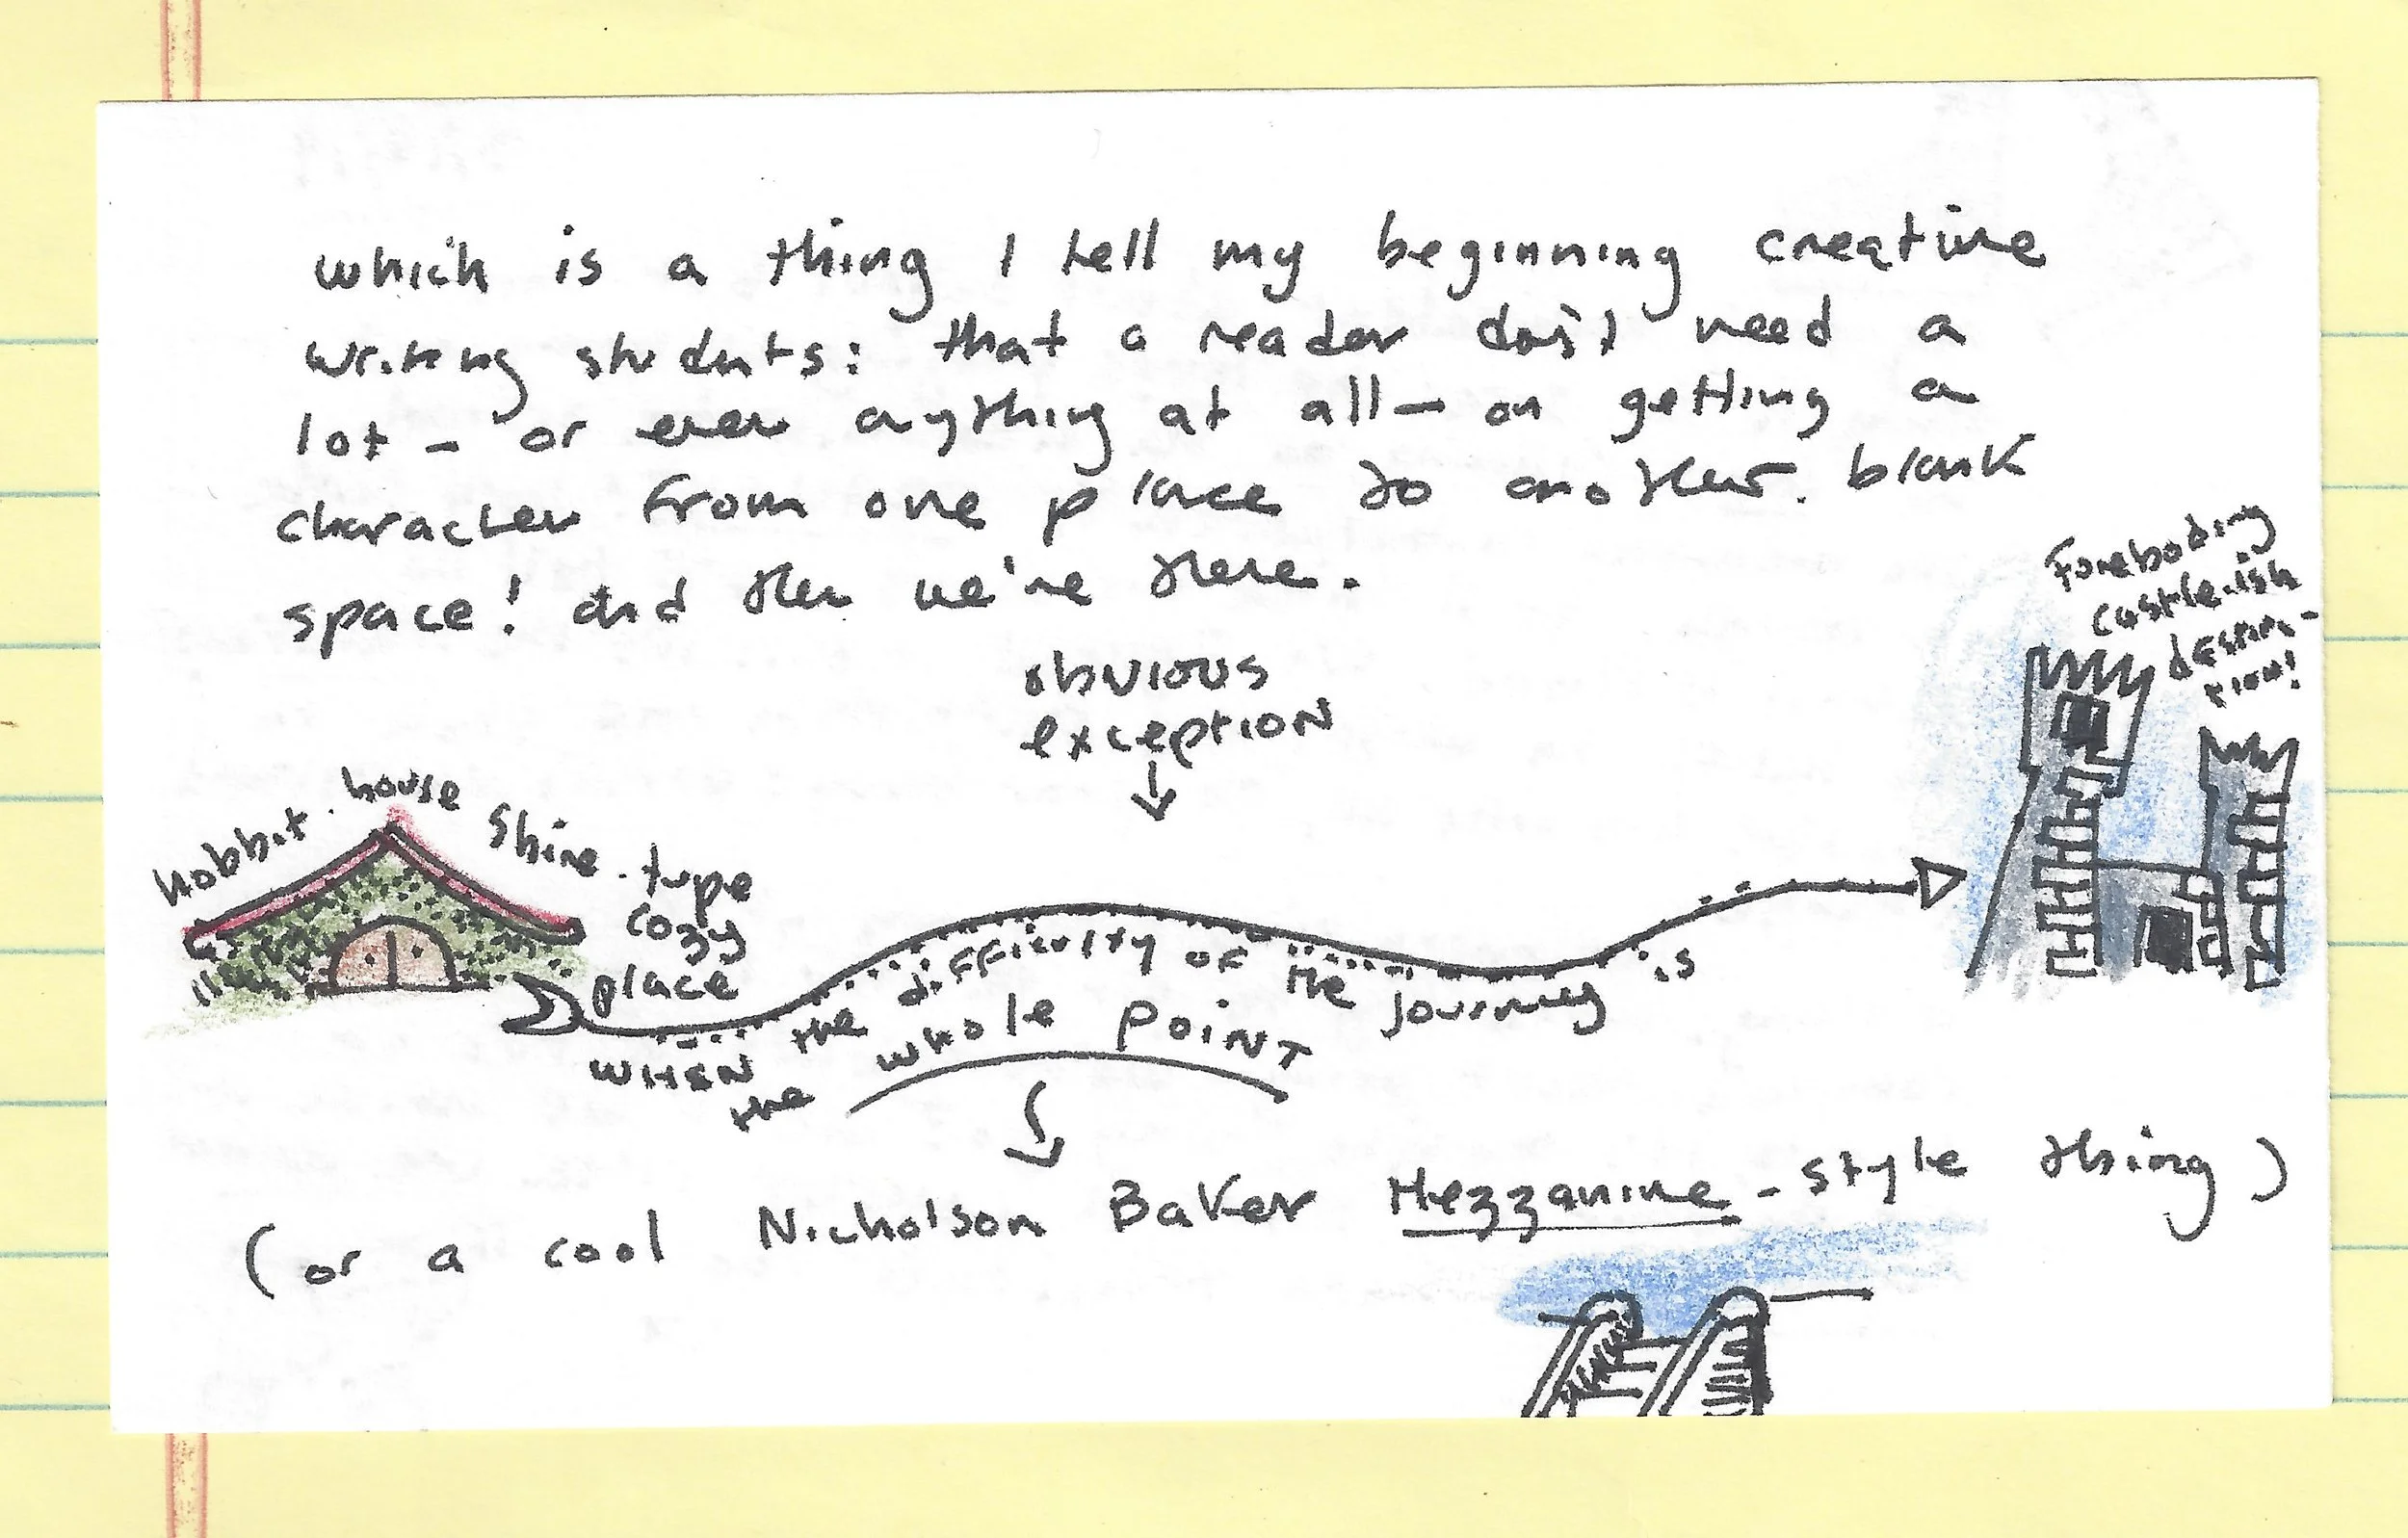 which is a thing I tell my beginning creative
writing students: that a reader doesn't need a
lot – or even anything at all – on getting a
character from one place to another. blank
space! and then we're there.
obvious
exception
foreboding
castle-ish
destina-
tion!
hobbit-house shire-type
cozy
place
WHEN the difficulty of the journey is
the whole point
(or a cool Nicholson Baker Mezzanine-style thing)